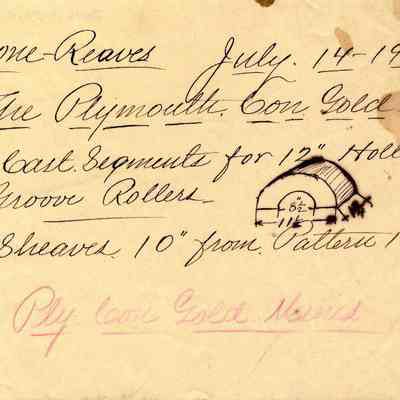 one-Reaves July. 14-19
The Plymouth. Con. Gold
Cast. Segments for 12" Holl
Groove Rollers.
8½"
11½
Sheaves. 10" from. Pattern 1
Ply Con Gold Mines